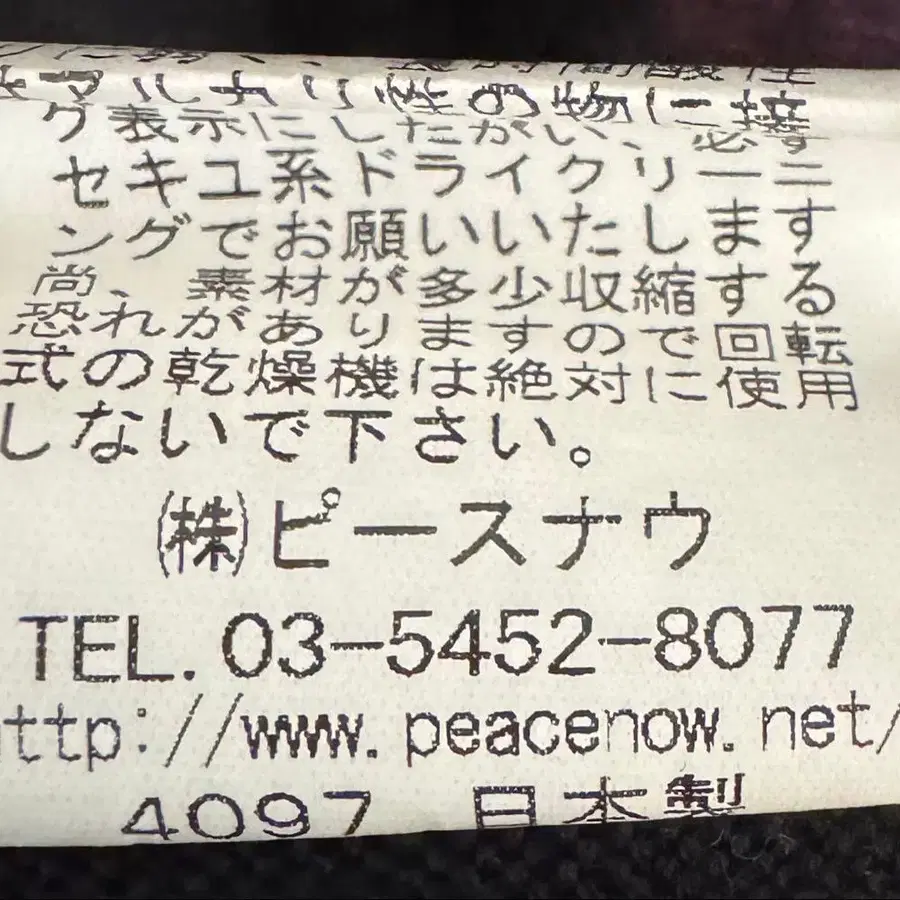 グ表示にしたがい、必ず
セキユ系ドライクリーニ
ングでお願いいたします
尚、素材が多少収縮する
恐れがあります ので回転
式の乾燥機は絶対に使用
しないで下さい。
㈱ピースナウ
TEL. 03-5452-8077
ttp://www.peacenow.net/
4097 日本製